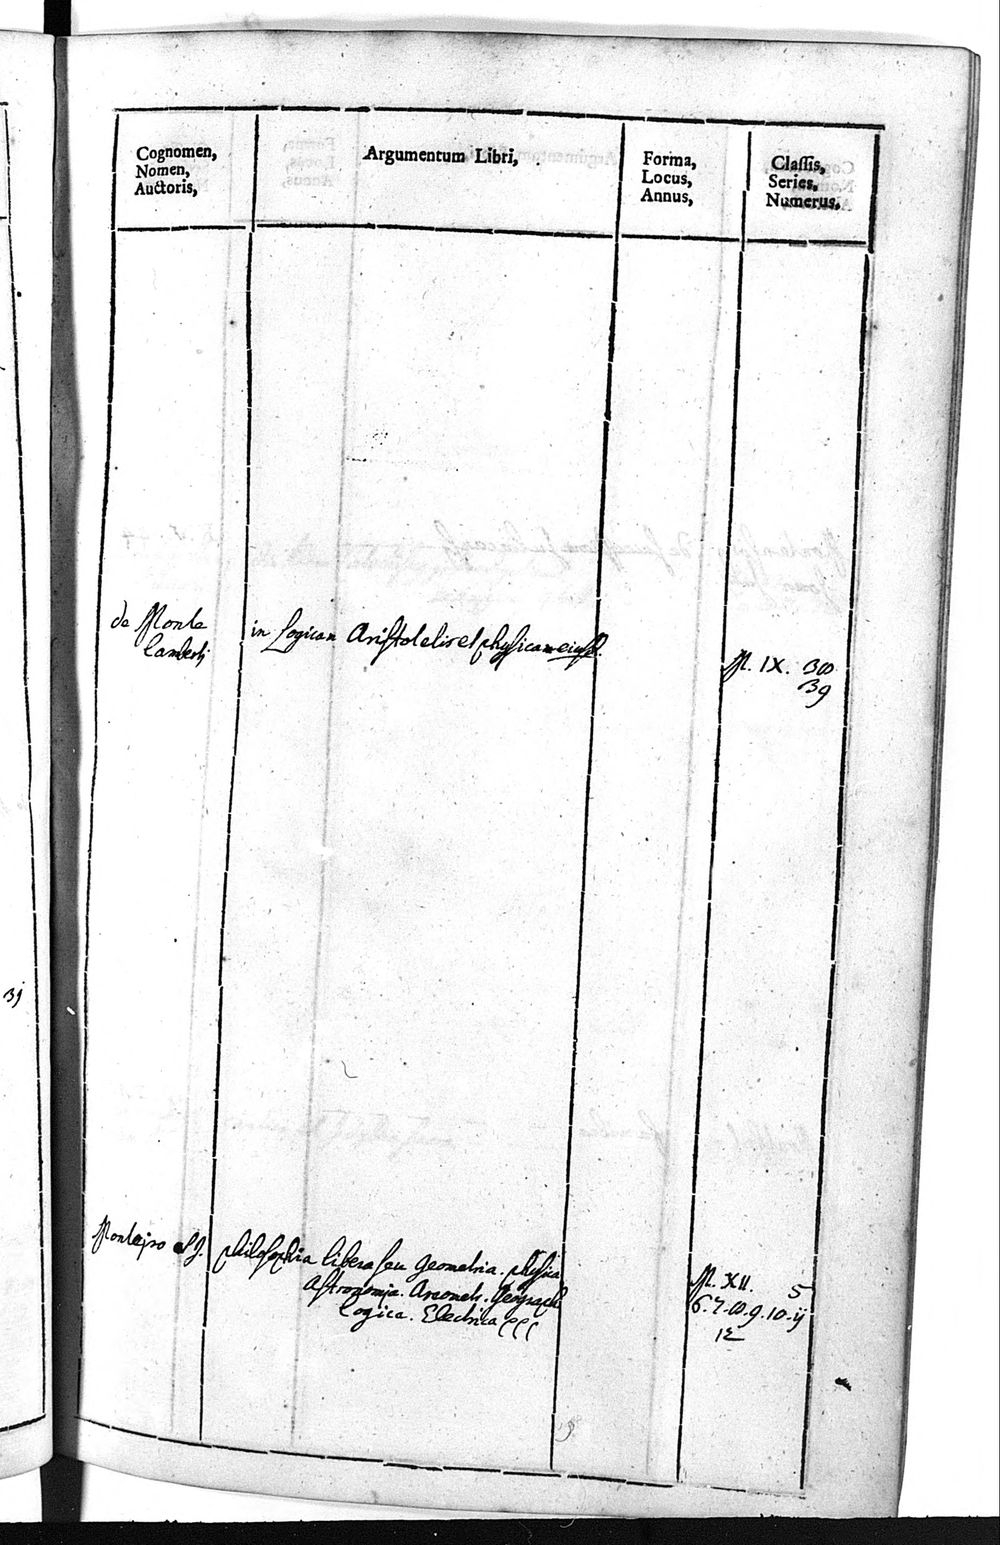 Cognomen,
Nomen,
Auctoris,
Argumentum Libri,
Forma,
Locus,
Annus,
Classis,
Series,
Numerus,
de Monte
Lamberti
in Logicam Aristotelis et physicam eiusd.
M. IX. 38
39
31
Monteiro S.J.
philosophia libera seu Geometria. physica
Astronomia. Areometr. Geograph
Logica. Electrica
M. XII. 5
6. 7. 8. 9. 10. ij
12